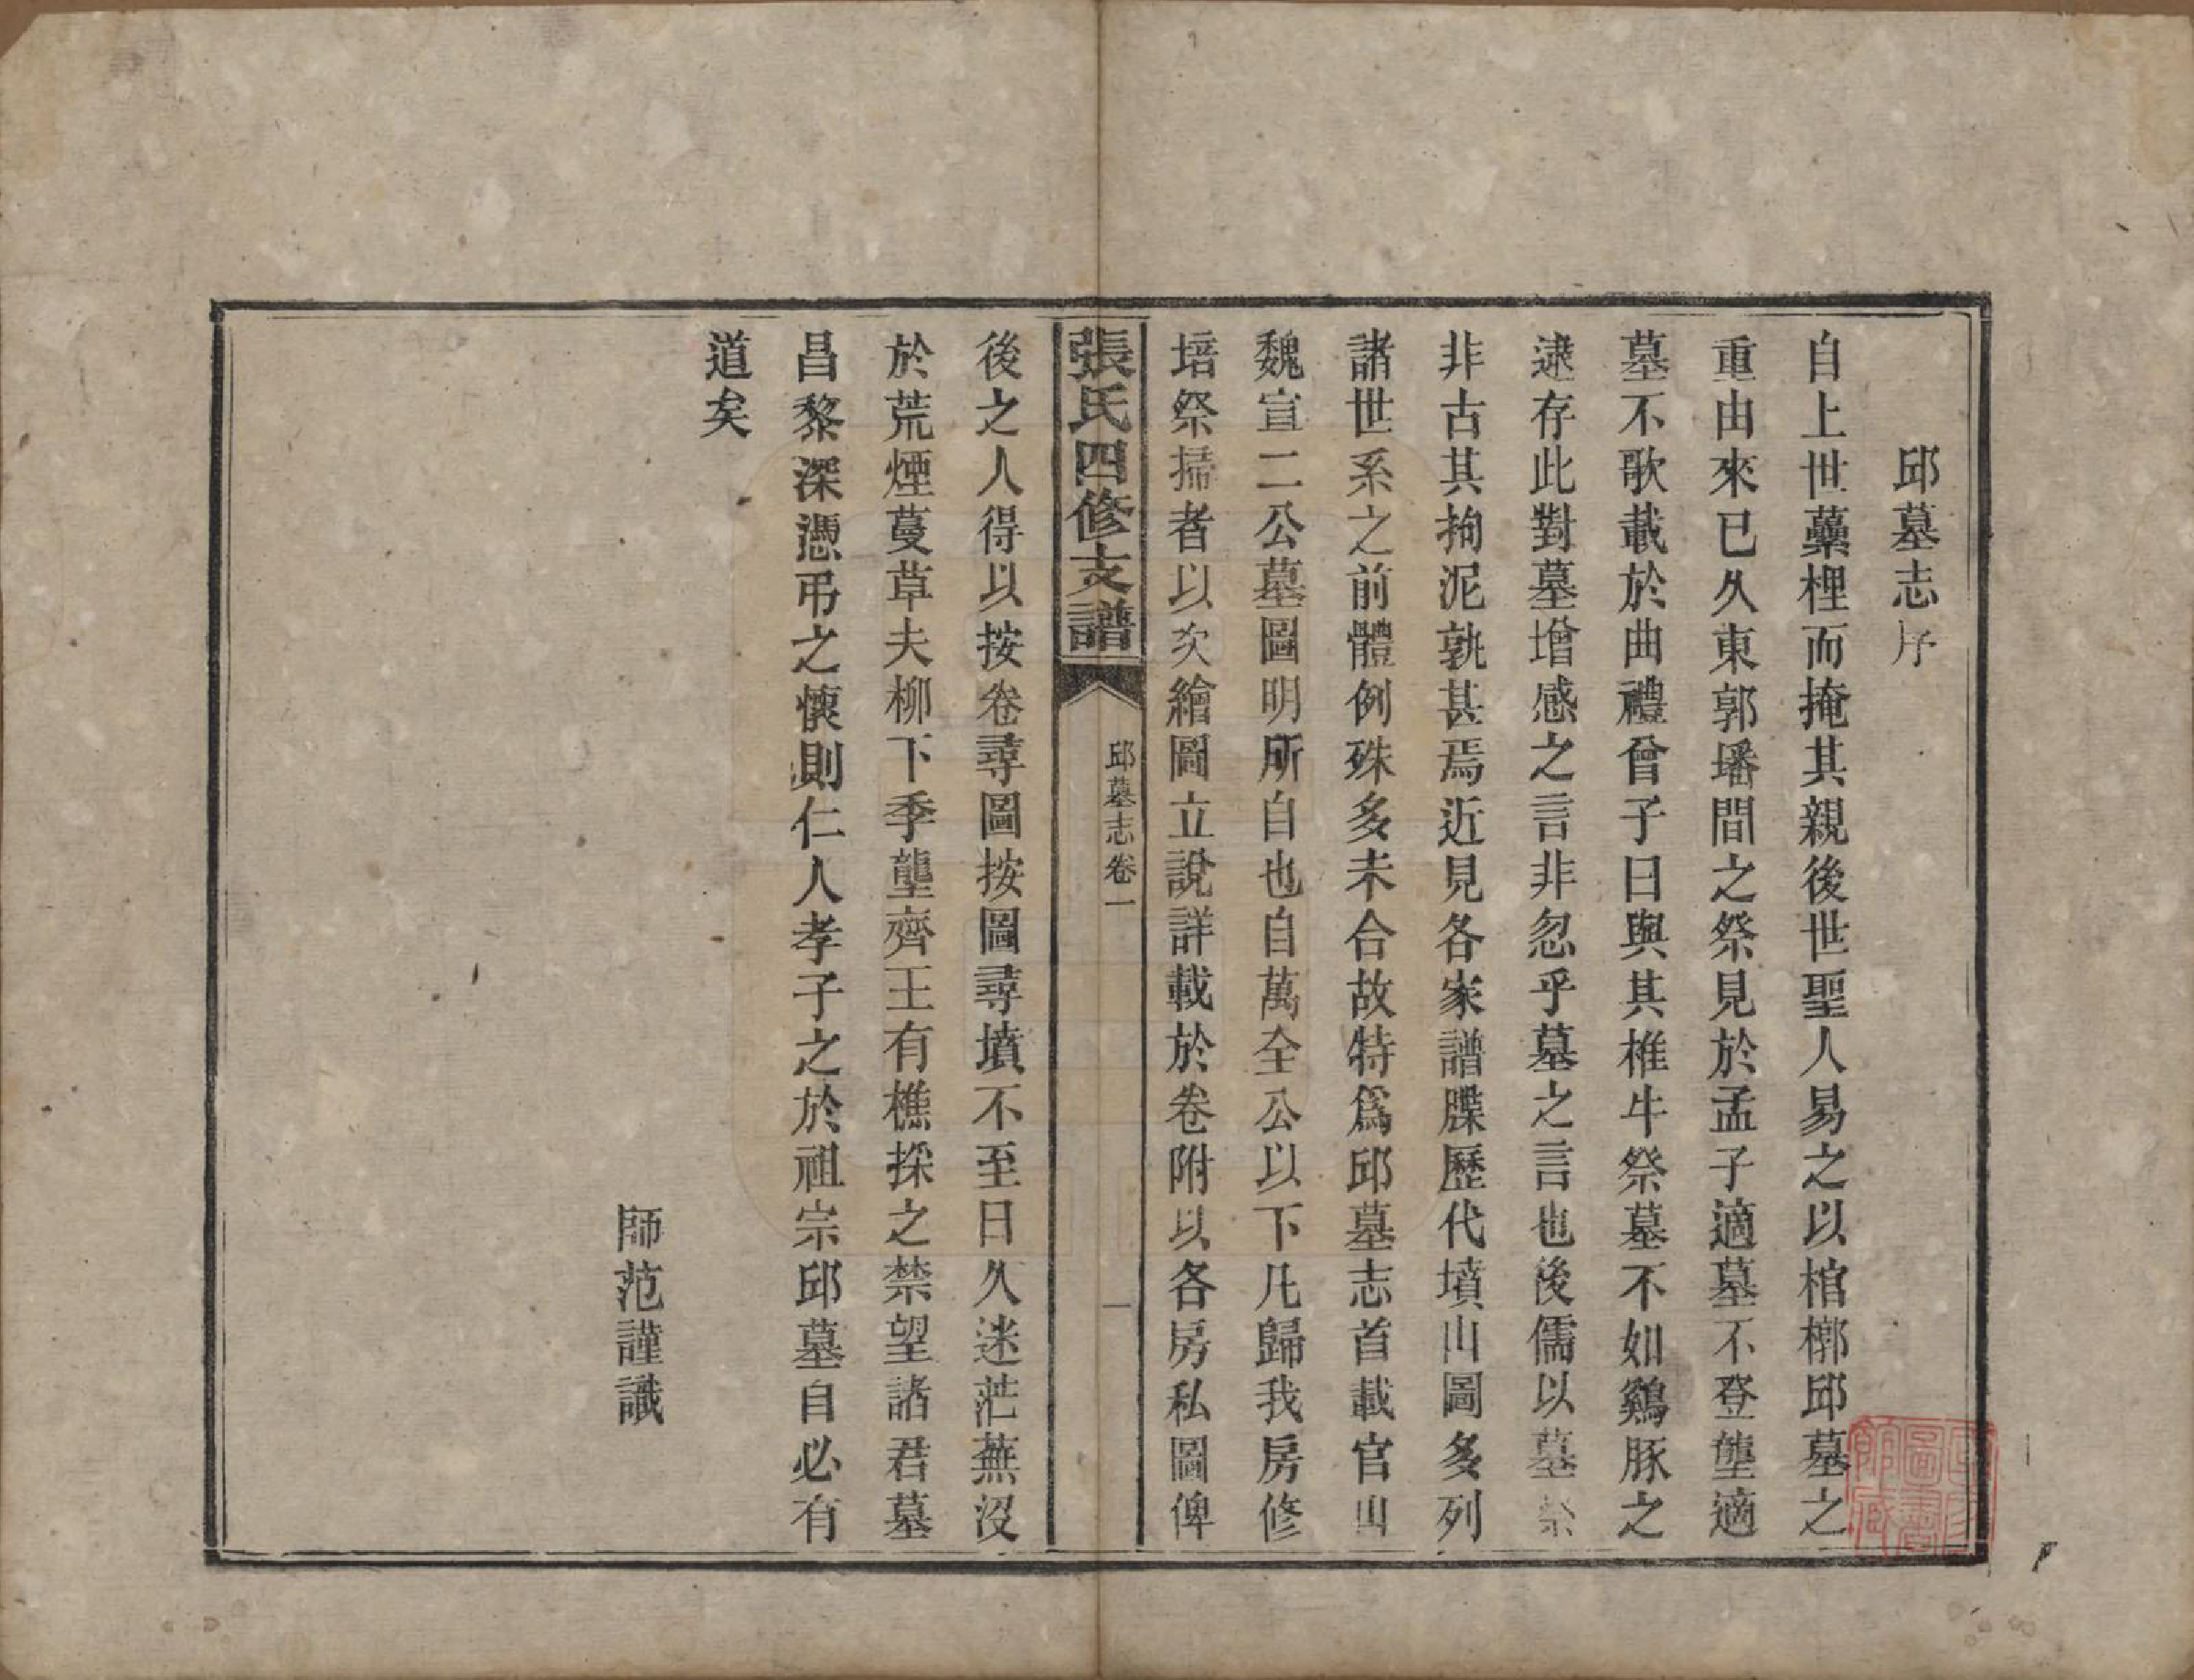 邱墓志序
自上世虆梩而掩其親後世聖人易之以棺槨邱墓之
重由來已久東郭墦間之祭見於孟子適墓不登壟適
墓不歌載於曲禮曾子曰與其椎牛祭墓不如鷄豚之
逮存此對墓增感之言非忽乎墓之言也後儒以墓祭
非古其拘泥孰甚焉近見各家譜牒歷代墳山圖多列
諸世系之前體例殊多未合故特爲邱墓志首載官山
魏宣二公墓圖明所自也自萬全公以下凡歸我房修
培祭掃者以次繪圖立說詳載於卷附以各房私圖俾
張氏四修支譜
邱墓志卷一
一
後之人得以按卷尋圖按圖尋墳不至日久迷茫蕪沒
於荒煙蔓草夫柳下季壟齊王有樵採之禁望諸君墓
昌黎深憑弔之懷則仁人孝子之於祖宗邱墓自必有
道矣
師范謹識